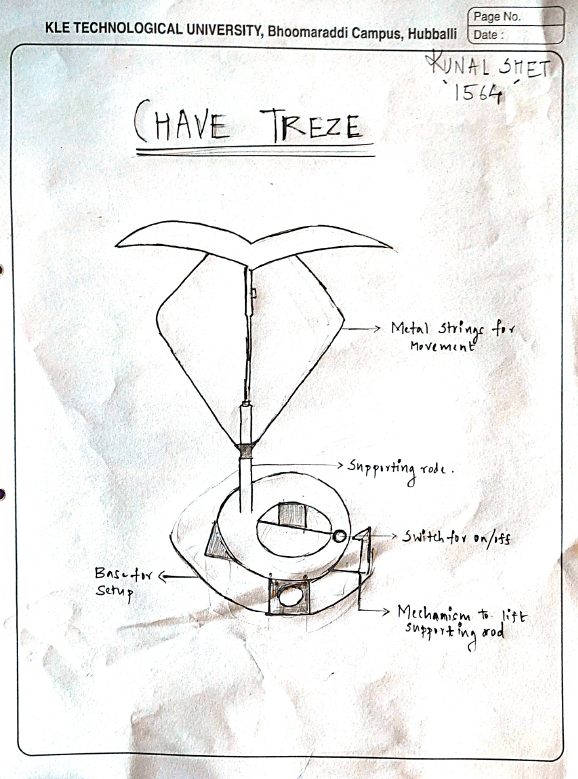 KLE TECHNOLOGICAL UNIVERSITY, Bhoomaraddi Campus, Hubballi
Page No.
Date :
KUNAL SHET
'1564'
CHAVE TREZE
Metal Strings for
Movement
Supporting rode.
Switch for on/off
Base for
Setup
Mechanism to lift
supporting rod